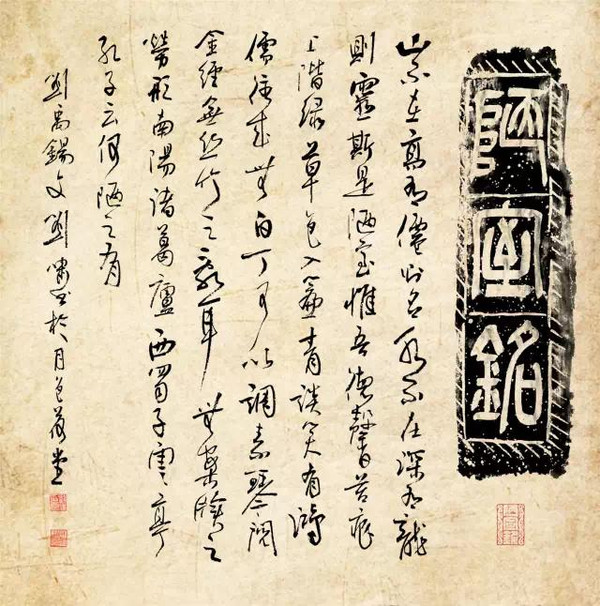 陋室銘
山不在高有僊則名水不在深有龍
則靈斯是陋室惟吾德馨苔痕
上階綠草色入簾青談笑有鴻
儒往來無白丁可以調素琴閱
金經無絲竹之亂耳無案牘之
勞形南陽諸葛廬西蜀子雲亭
孔子云何陋之有
劉禹錫文劉書於月色堂